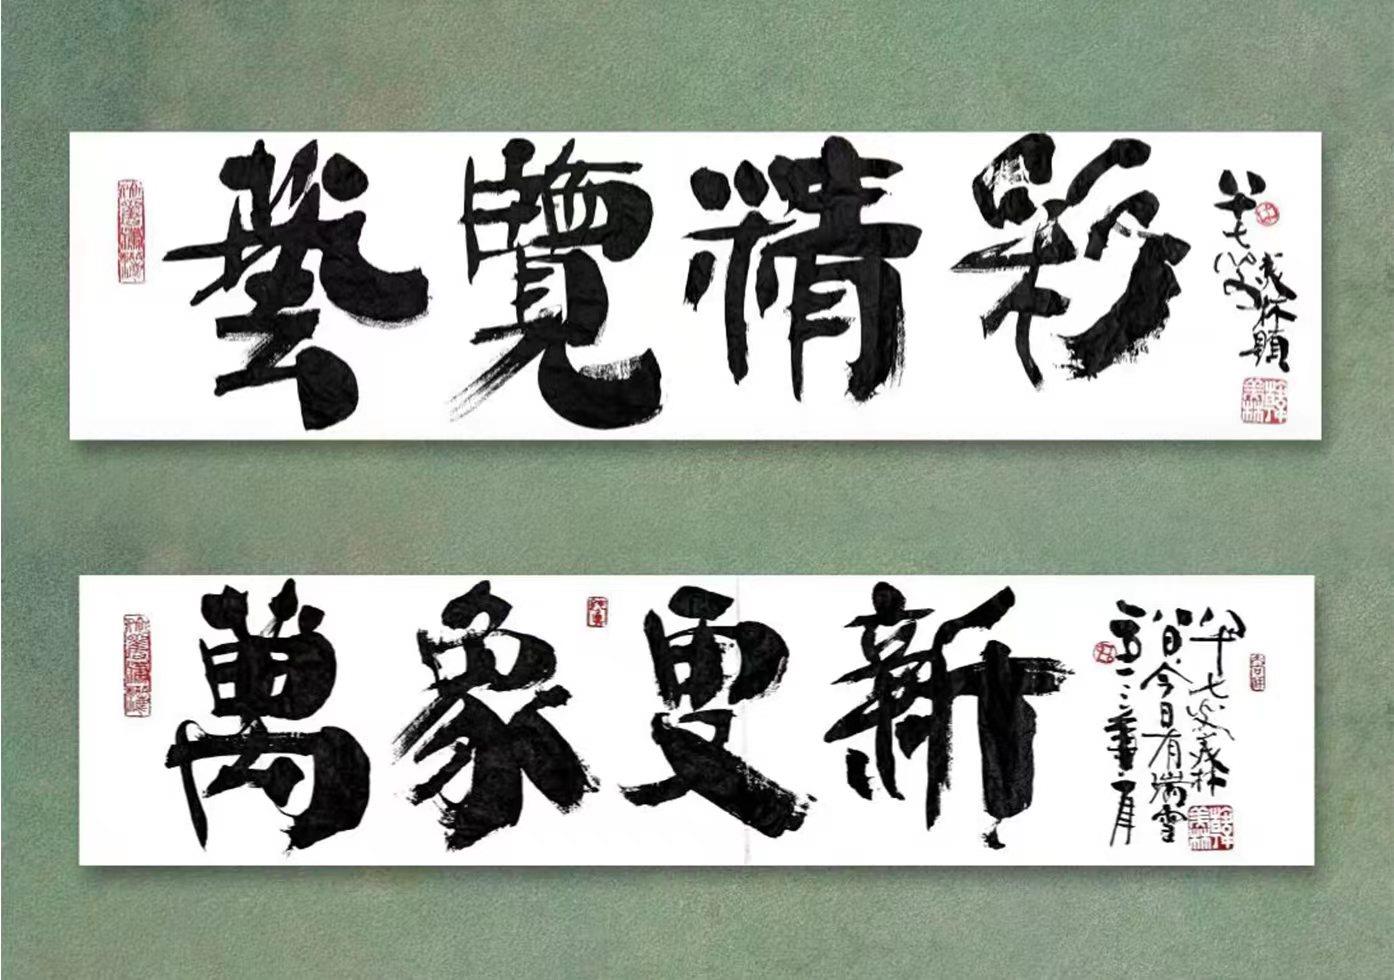 藝覽精彩
八十七叟
義林題
萬象更新
今日有瑞雪
八十七叟義林